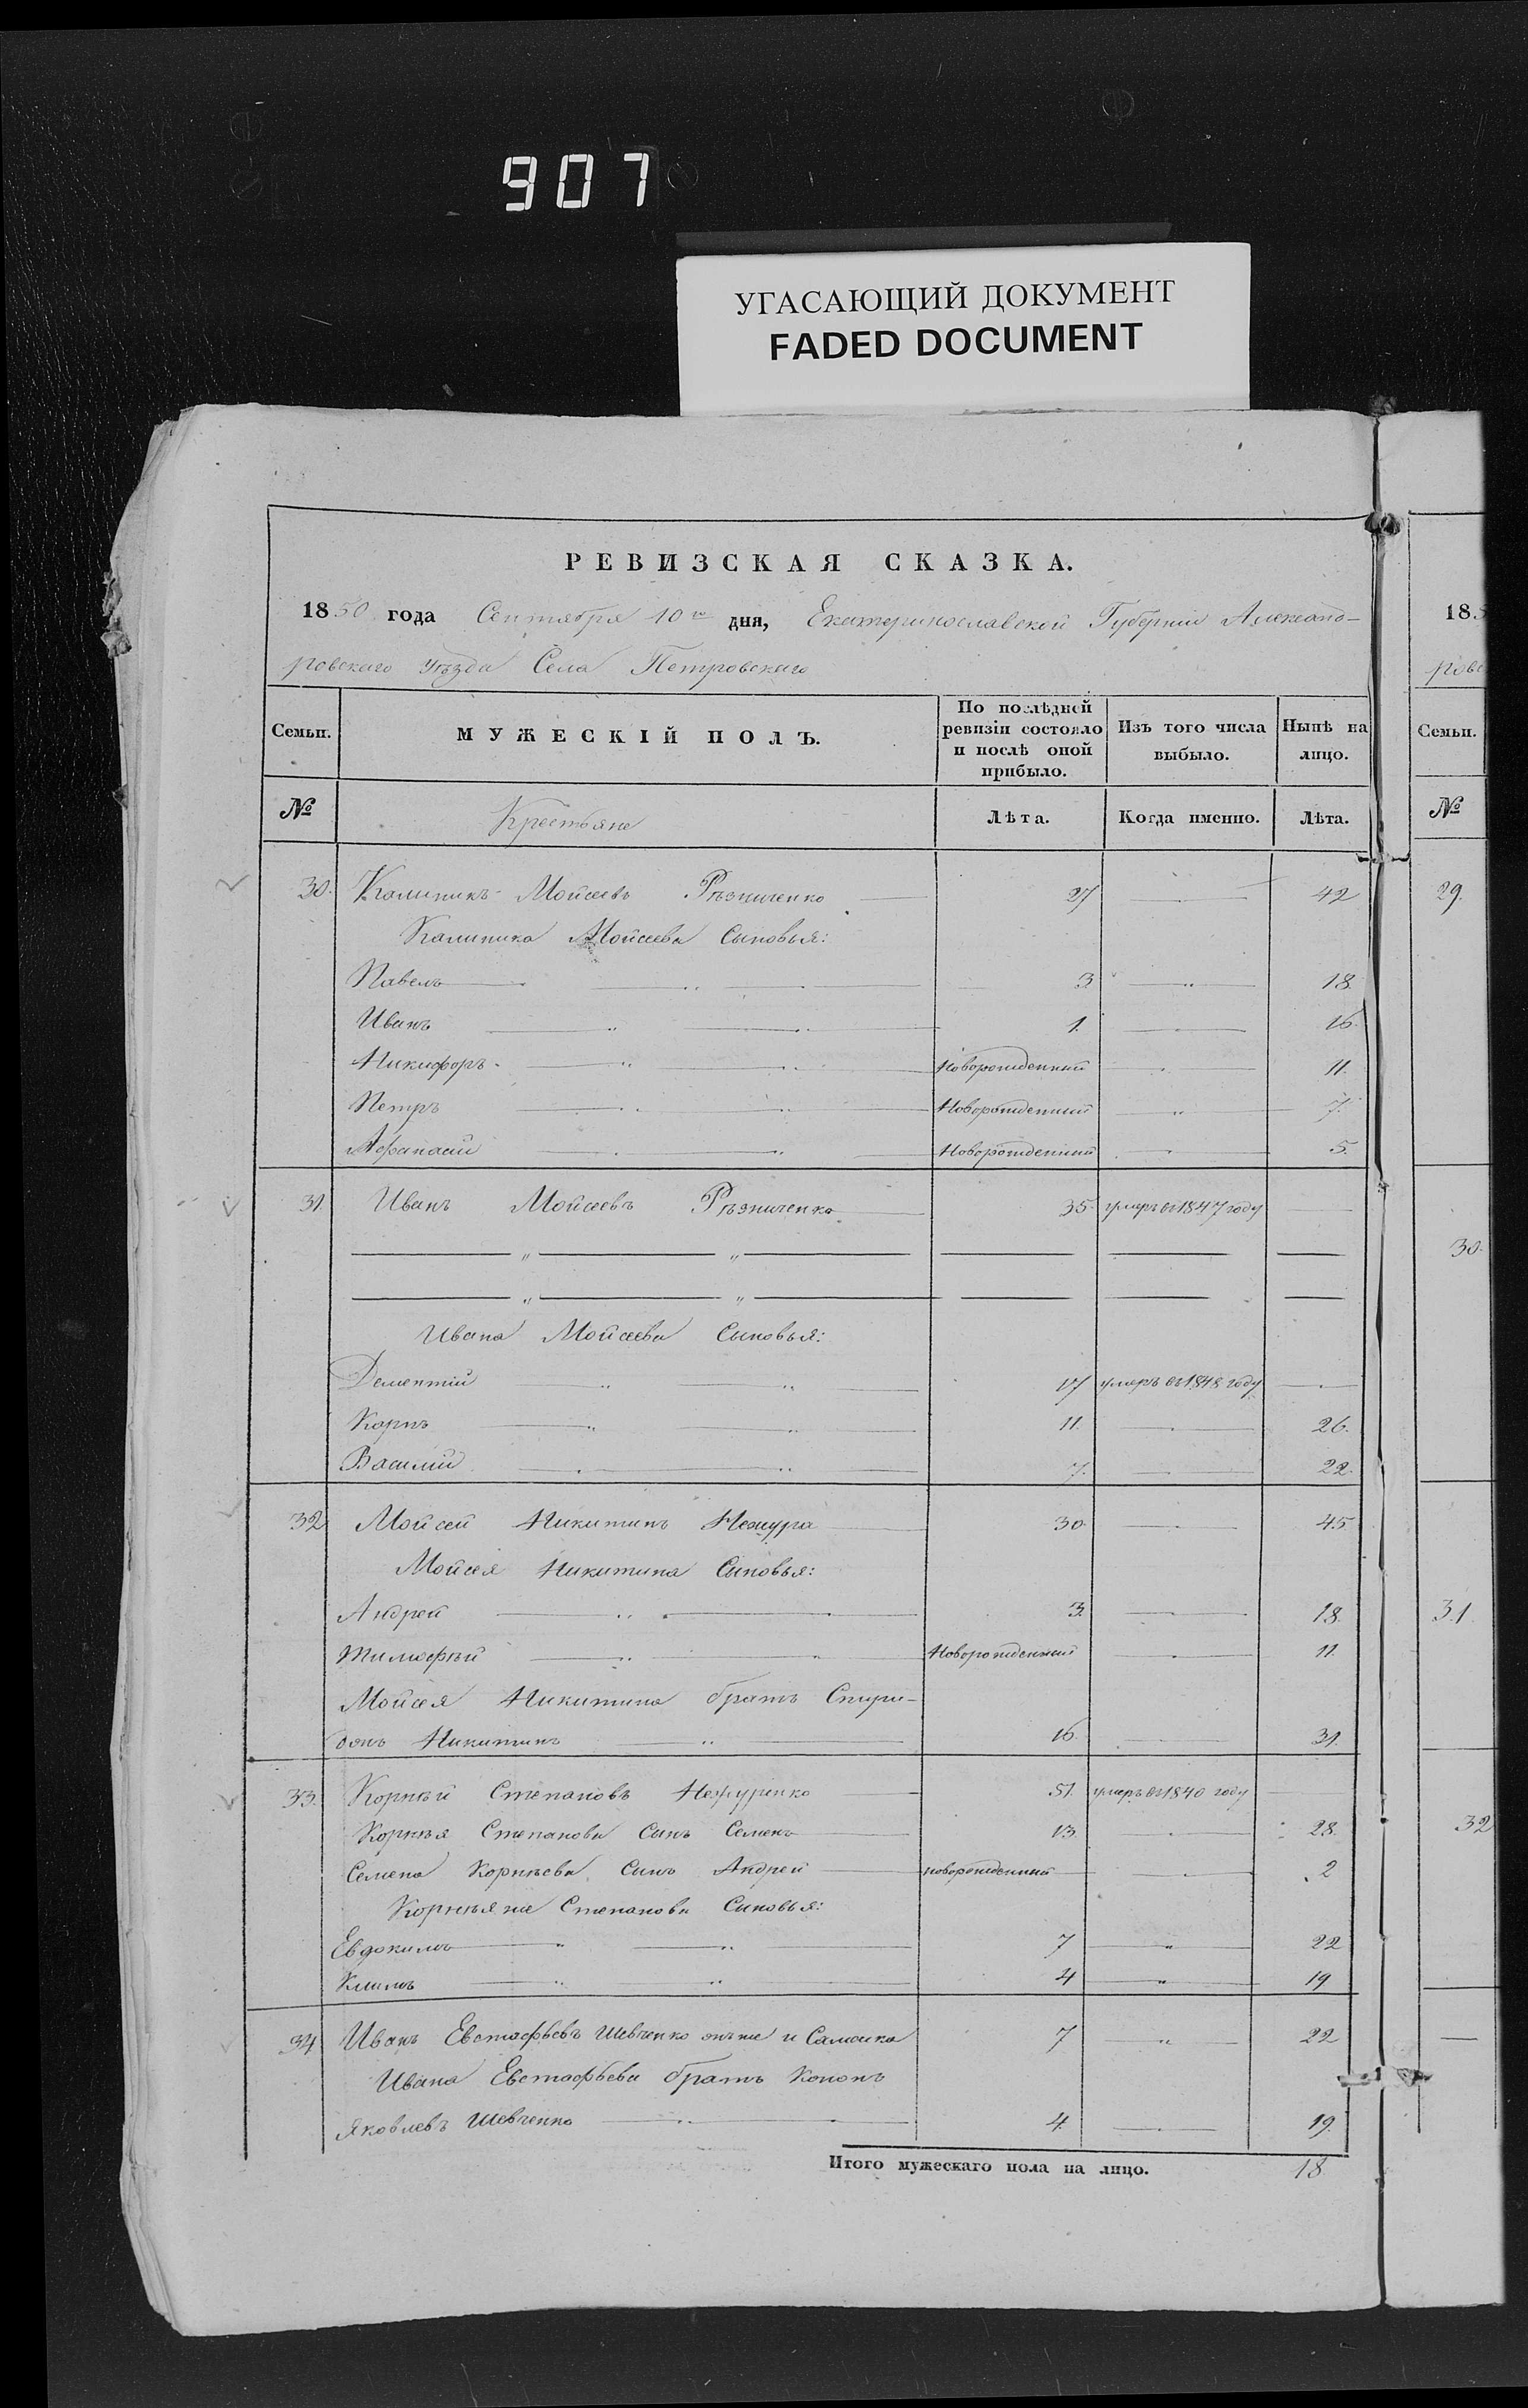 907
УГАСАЮЩИЙ ДОКУМЕНТ
FADED DOCUMENT
РЕВИЗСКАЯ СКАЗКА.
1850 года Сентября 10го дня, Екатеринославской Губернии Александ-
ровскаго уѣзда Села Петровскаго
Семьи. МУЖЕСКІЙ ПОЛЪ. По послѣдней ревизіи состояло и послѣ оной прибыло. Изъ того числа выбыло. Нынѣ на лицо.
№ Крестьяне Лѣта. Когда именно. Лѣта.
30. Калиникъ Мойсеевъ Рѣзниченко 27 42
Калиника Мойсеева Сыновья:
Павелъ 3 18.
Иванъ 1. 16.
Никифоръ Новорожденный 11.
Петръ Новорожденный 7.
Афанасій Новорожденный 5.
31. Иванъ Мойсеевъ Рѣзниченко 35 умеръ въ 1847 году
Ивана Мойсеева Сыновья:
Дементій 17 умеръ въ 1848 году
Карпъ 11. 26.
Василій 7. 22.
32 Мойсей Никитинъ Нежура 30 45
Мойсея Никитина Сыновья:
Андрей 3. 18.
Тимофѣй Новорожденный 11.
Мойсея Никитина братъ Спири-
донъ Никитинъ 16. 31.
33. Корнѣй Степановъ Нежуренко 51. умеръ въ 1840 году
Корнѣя Степанова Сынъ Семенъ 13. 28.
Семена Корнѣева Сынъ Андрей новорожденный 2
Корнѣя же Степанова Сыновья:
Евдокимъ 7 22
Климъ 4 19
34 Иванъ Евстафьевъ Шевченко онъ же и Самойла 7 22
Ивана Евстафьева братъ Кононъ
Яковлевъ Шевченко 4. 19.
Итого мужескаго пола на лицо. 18
185
ровс
Семьи.
№
29.
30.
31.
32